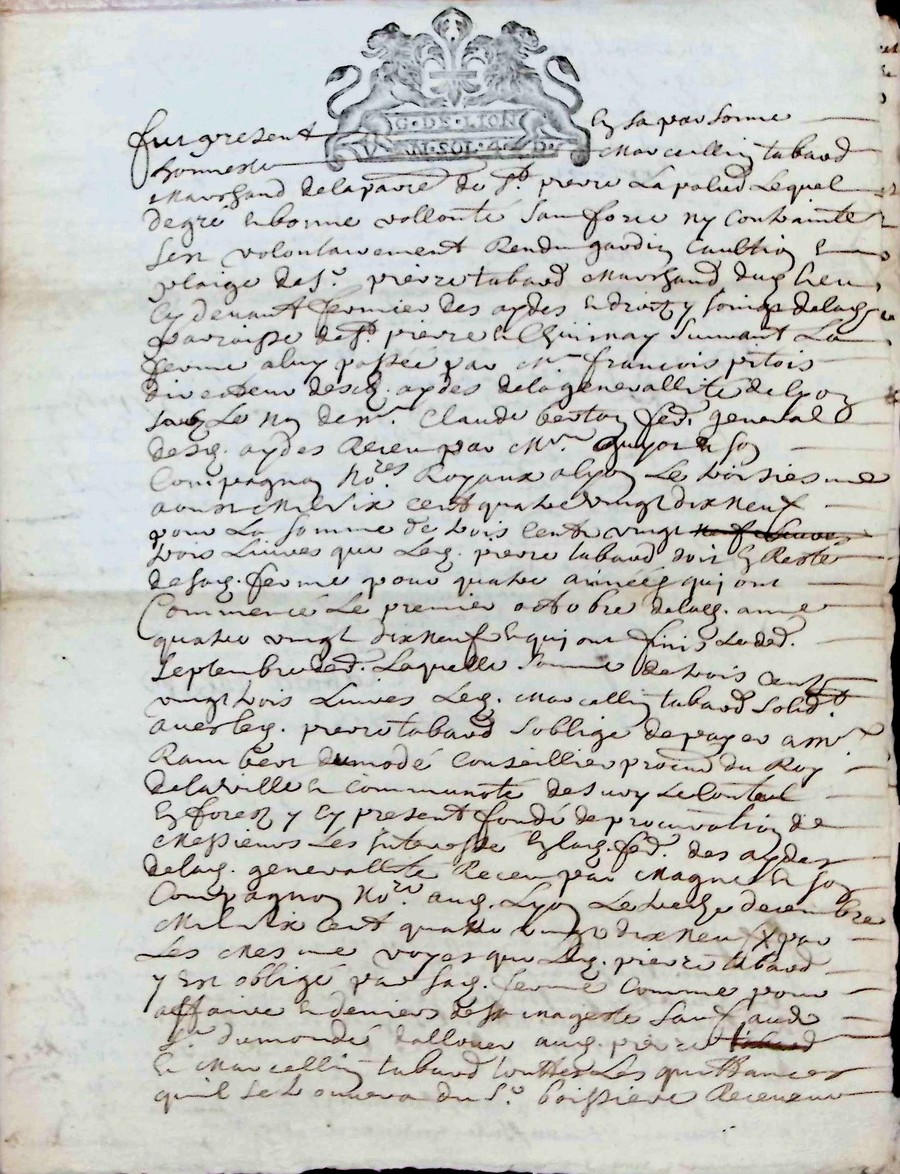 G·DE·LION
SOL·4·D·
fut present en sa personne
honneste Marcellin tabard
Marchand de la parre de St. pierre La palud Lequel
de gré et bonne vollonté sans force ny Contrainte
sest volontairement Rendu gardien Caultion et
plaige de Sr. pierre tabard Marchand dud. lieu
Cy devant fermier des aydes et droitz y joingt de lad.
parroisse de St. pierre et Suivant La
ferme a luy passée par Mr. françois pitois
directeur desd. aydes de la generallité de Lyon
soubz Le nom de mr. Claude fer. general
desd. aydes Receu par Mre. guyot et son
Compagnon No.res Royaux a lyon Le troisiesme
aoust Mil Six cent quatre vingt dix neuf
pour La somme de trois Cents vingt neuf Livres
trois Livres que Led. pierre tabard doit de Reste
de sad. ferme pour quatre années qui ont
Commencé Le premier octobre de lad. anné
quatre vingt dix neuf et qui ont finis Le der.
Septembre Laquelle Somme de trois Cent
vingt trois Livres Led. Marcellin tabard Solid.t
avec led. pierre tabard s'oblige de payer a Mr.
Rambert dumodé Conseillier procur. du Roy
de la ville et Communoté de Sury Le Contal
En forez y Cy present fondé de procuration de
Messieurs Les Interessé En lad. fer. des aydes
de lad. generallité Receu par et son
Compagnon No.re aud. Lyon Le decembre
Mil Six cent quatre vingt dix neuf par
Les Mesme voyes que Led. pierre tabard
y Est obligé par sad. ferme Comme pour
affaire et deniers de Sa Majesté Sauf aud.
Sr. dumodé d'allouer aud. pierre tabard
Et Marcellin tabard touttes Les quittances
quil se trouvera du Sr. boissiere Receveur